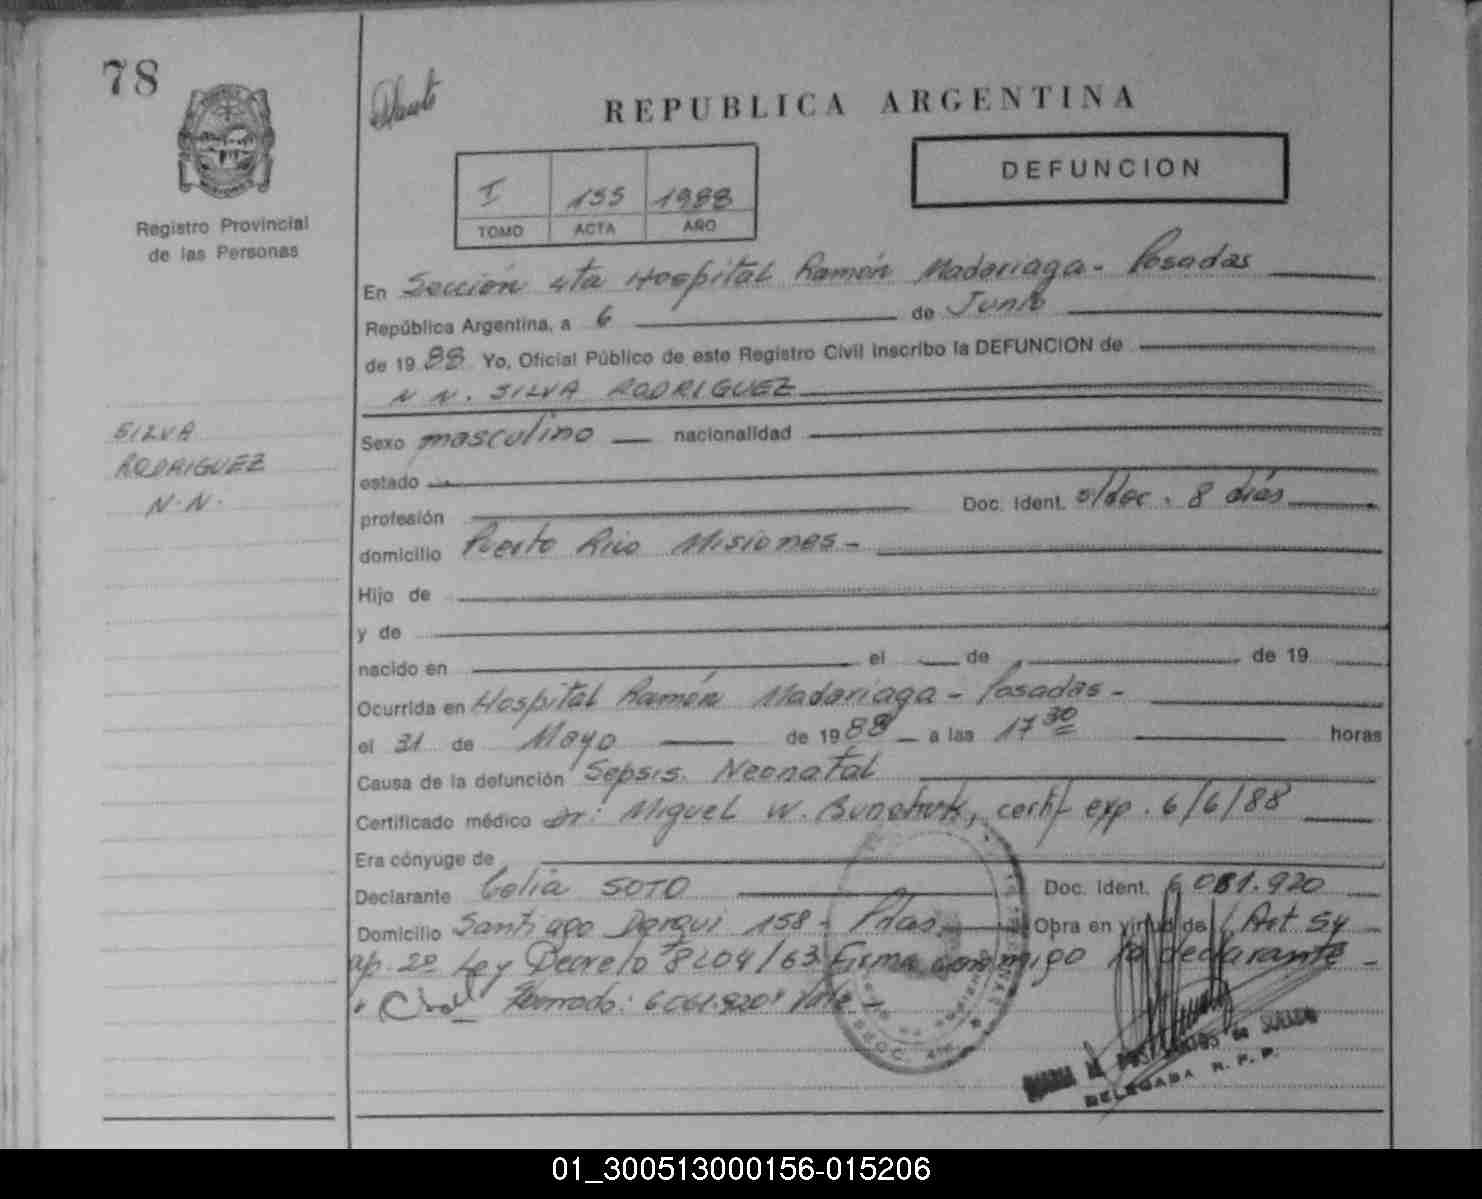 78
REPUBLICA ARGENTINA
DEFUNCION
I 155 1988
TOMO ACTA AÑO
Registro Provincial
de las Personas
En Sección 4ta Hospital Ramón Madariaga - Posadas
República Argentina, a 6 de Junio
de 1988 Yo, Oficial Público de este Registro Civil inscribo la DEFUNCION de
N N. SILVA RODRIGUEZ
SILVA
RODRIGUEZ
N.N.
Sexo masculino nacionalidad
estado
profesión Doc. Ident. s/doc. 8 días
domicilio Puerto Rico Misiones -
Hijo de
y de
nacido en el de de 19
Ocurrida en Hospital Ramón Madariaga - Posadas -
el 31 de Mayo de 1988 a las 17 30 horas
Causa de la defunción Sepsis Neonatal
Certificado médico Dr: Miguel W. certif exp. 6/6/88
Era cónyuge de
Declarante Celia SOTO Doc. Ident. 6 081.920
Domicilio Santiago Derqui 158 - Pdas. Obra en virtud de Art 54
ap. 2º Ley Decreto 8204/63 Firma conmigo la declarante -
6.061.920 Vale -
DELEGADA R. P. P.
01_300513000156-015206